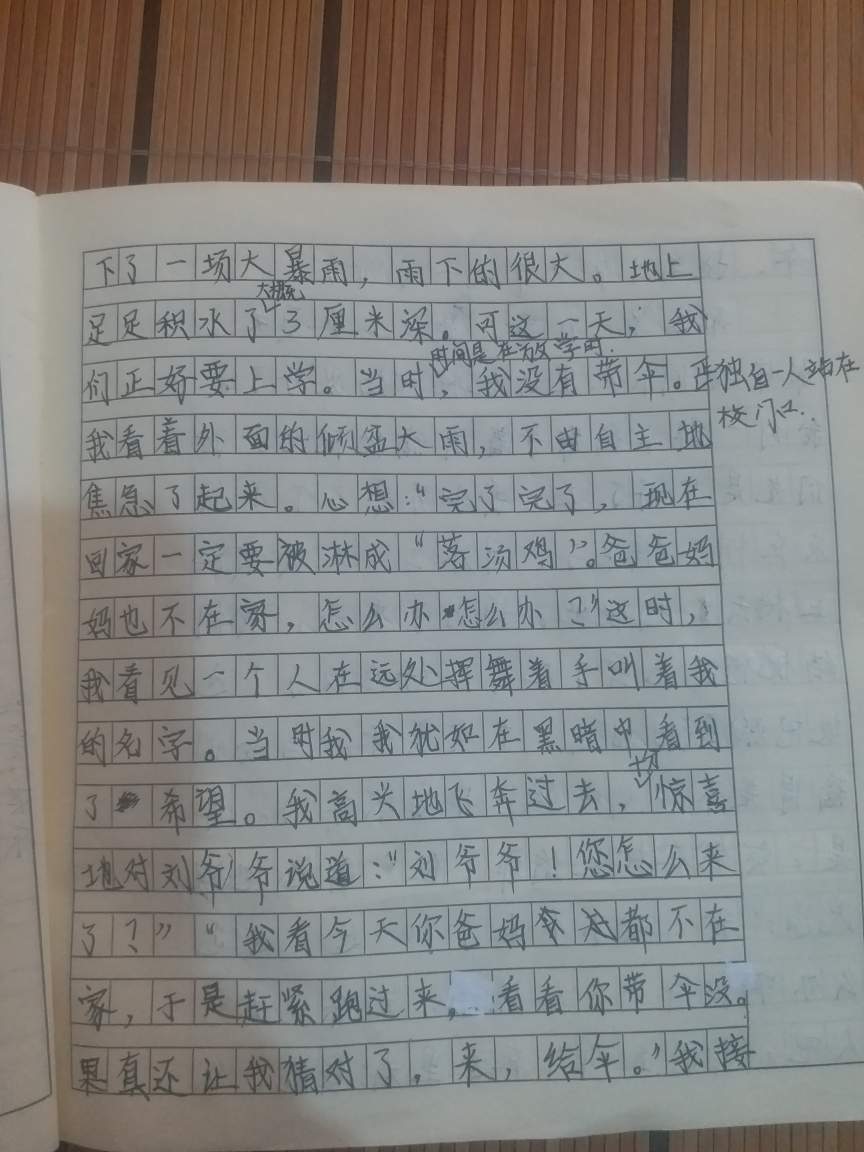 下了一场大暴雨，雨下的很大。地上
大概
足足积水了3厘米深。可这一天，我
时间是在放学时.
们正好要上学。当时，我没有带伞。
独自一人站在
校门口..
我看着外面的倾盆大雨，不由自主地
焦急了起来。心想：“完了完了，现在
回家一定要被淋成“落汤鸡”。爸爸妈
妈也不在家，怎么办怎么办？”这时，
我看见一个人在远处挥舞着手叫着我
的名字。当时我我犹如在黑暗中看到
了希望。我高兴地飞奔过去，惊喜
地对刘爷爷说道：“刘爷爷！您怎么来
了？”“我看今天你爸妈都不在
家，于是赶紧跑过来，看看你带伞没。
果真还让我猜对了。来，给伞。”我接